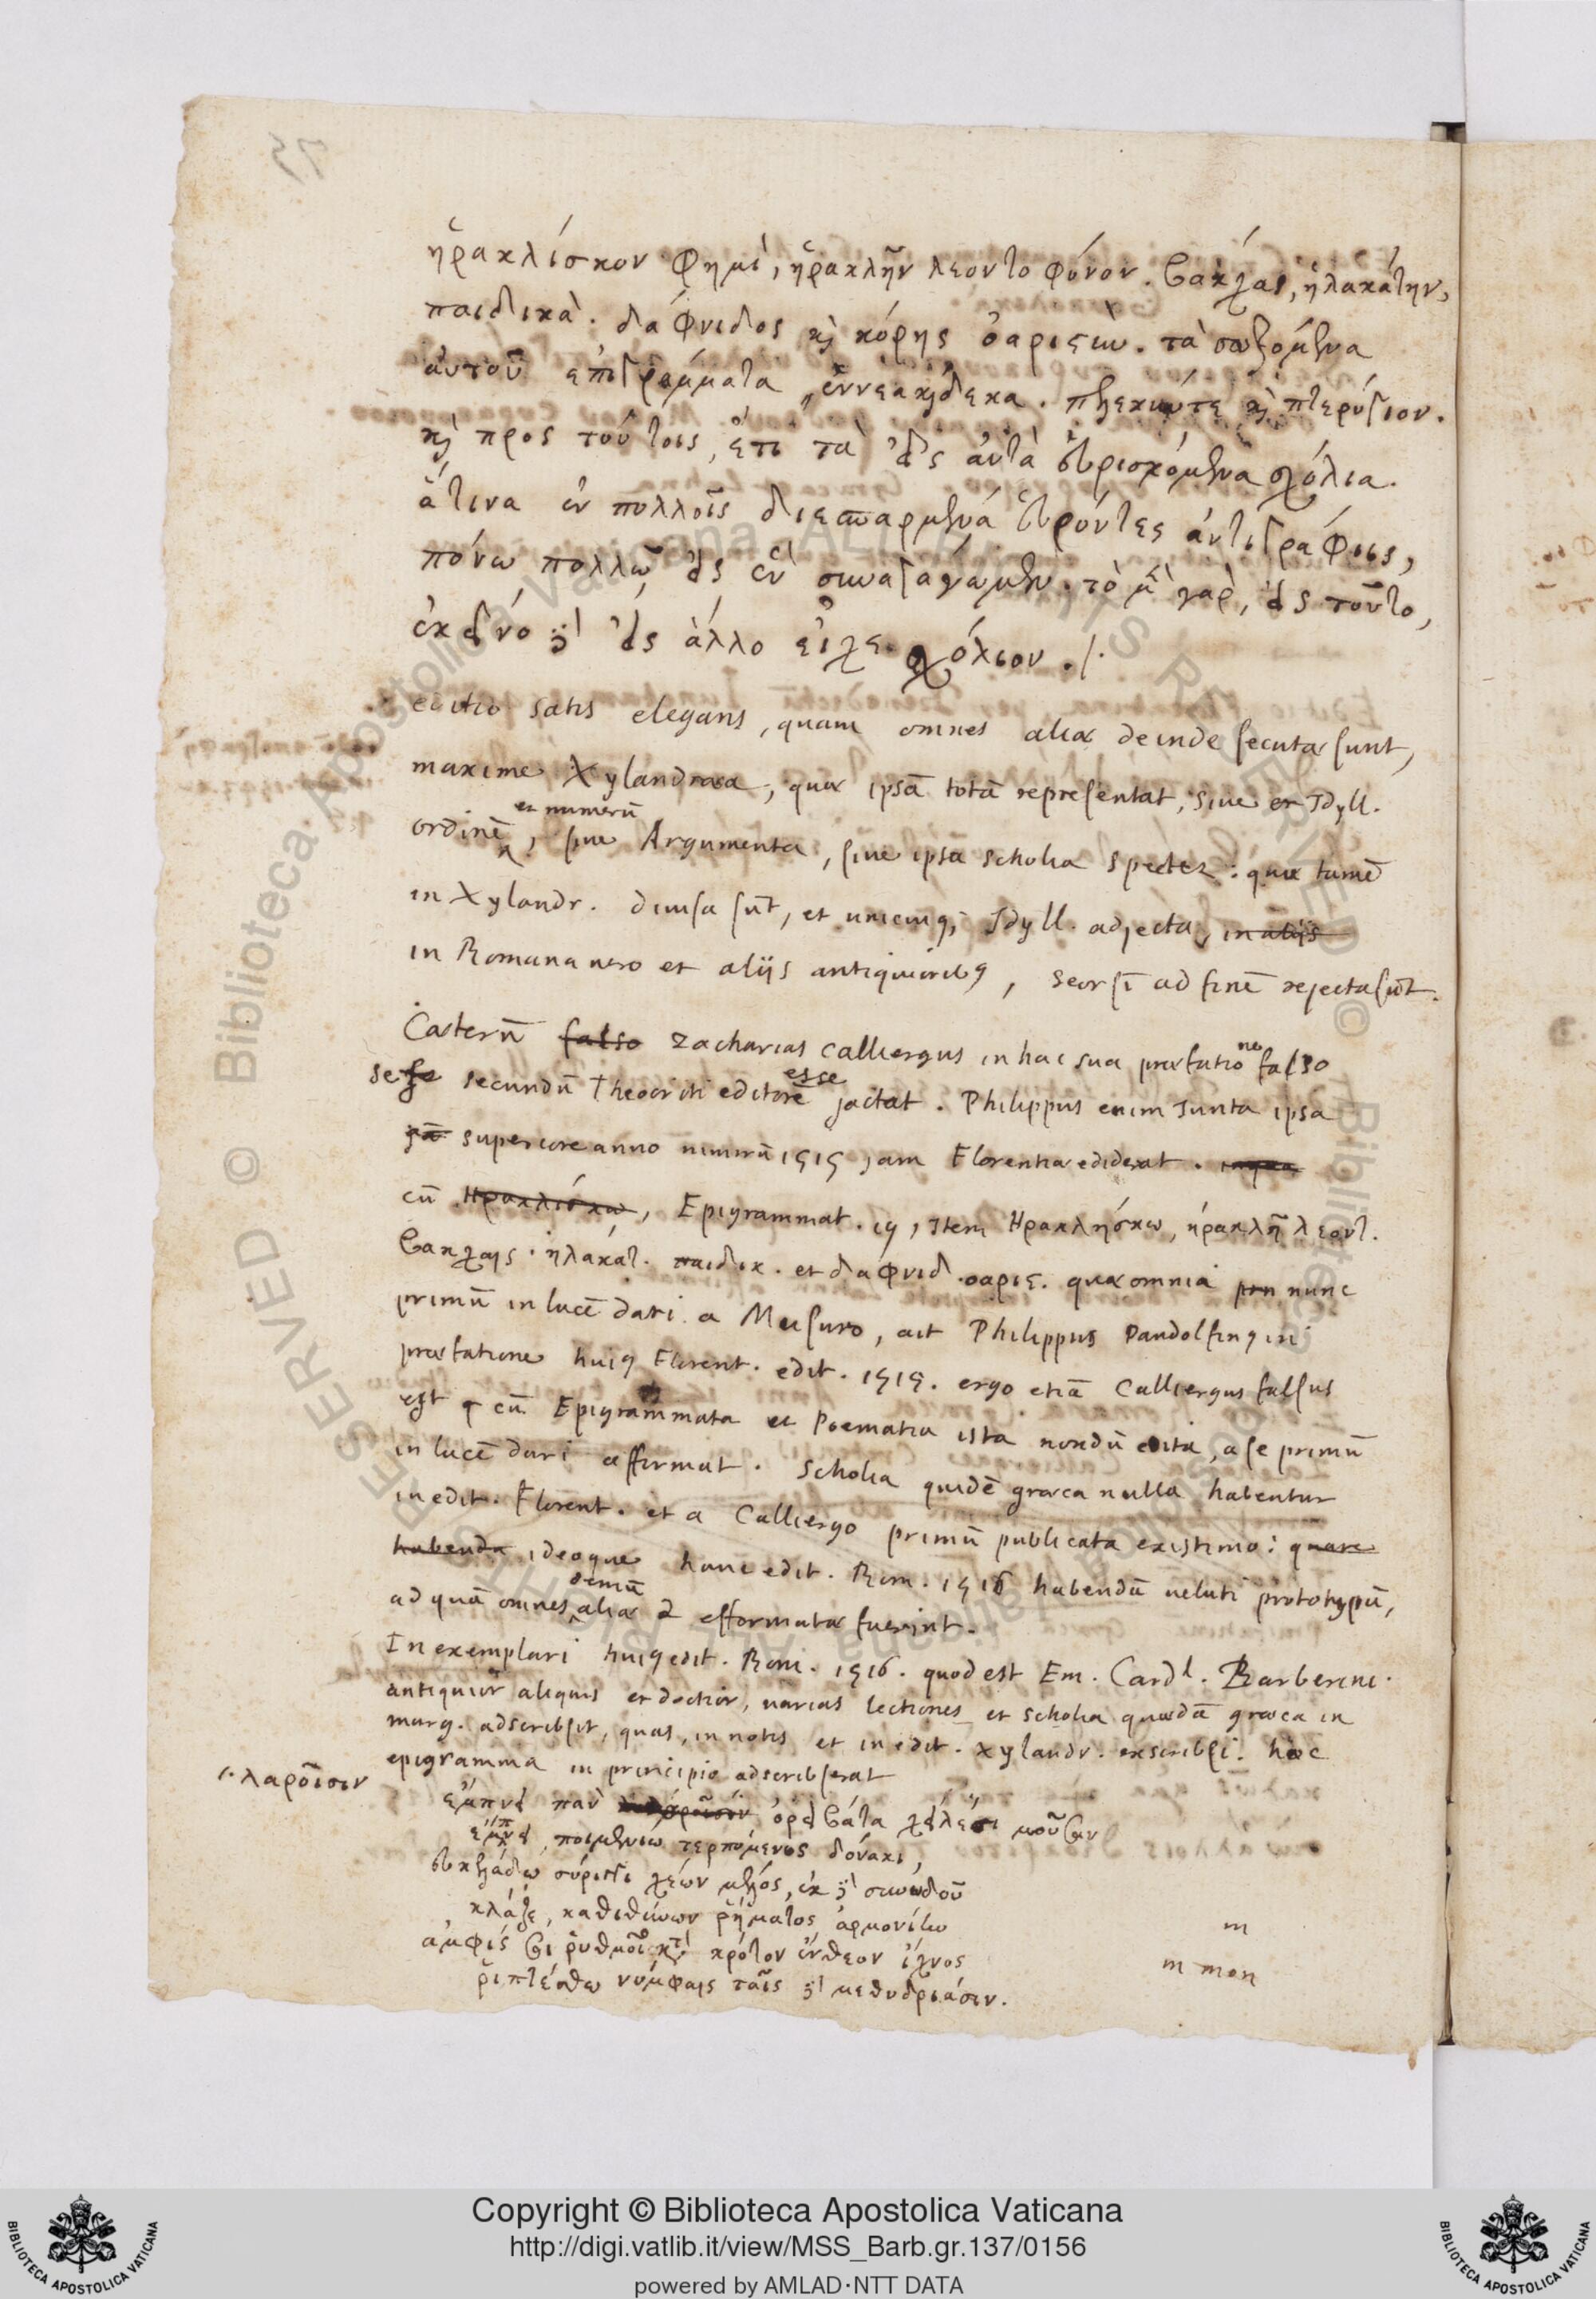 ἡρακλίσκον φημὶ, ἡρακλῆν λεοντοφόνον. βάκχας, ἠλακάτην,
παιδικὰ. δάφνιδος κὶ κόρης ὀαριστὺν. τὰ σωζόμενα
αὐτοῦ ἐπιγράμματα ἐννεακαίδεκα. πέλεκύν τε κὶ πτερύγιον.
κὶ πρὸς τούτοις, ἔτι τὰ εἰς αὐτὰ εὑρισκόμενα σχόλια.
ἅτινα ἐν πολλοῖς διεσπαρμένα εὑρόντες ἀντιγράφοις,
πόνῳ πολλῷ εἰς ἓν συναγάγωμεν. τὸ μὲν γὰρ, εἰς τοῦτο,
ἐκεῖνο δὲ εἰς ἄλλο εἶχε σχόλιον ./.
editio satis elegans, quam omnes aliæ deinde secutæ sunt,
maxime Xylandræa, quæ ipsā totā repræsentat, siue et Idyll.
et numerū
ordinē, siue Argumenta, siue ipsa scholia spectes: quæ tamē
in Xylandr. diuisa sūt, et unicuiq; Idyll. adjecta, in aliis
in Romana uero et aliis antiquioribꝰ, seorsī ad finē rejecta sūt.
Cæterū falso Zacharias Calliergus in hac sua præfatione falso
se se secundū Theocriti editorē esse jactat. Philippus enim Junta ipsa
superiore anno nimirū 1515 jam Florentiæ ediderat.
cū Ηρακλίσκω, Epigrammat. 19, Item Ηρακλήσκω, ἡρακλῆ λεοντ.
βάκχαις. ἠλακάτ. παιδικ. et δάφνιδ. οαρις. quæ omnia nunc
primū in lucē dari a Musuro, ait Philippus Pandolfinꝰ in
præfatione huiꝰ Florent. edit. 1515. ergo etiā Calliergus falsus
est cū Epigrammata et Poematia ista nondū edita, a se primū
in lucē dari affirmat. Scholia quidē græca nulla habentur
in edit. Florent. et a Calliergo primū publicata existimo: quare
habenda ideoque hanc edit. Rom. 1516 habendā ueluti prototypū,
ad quā omnes demū aliæ efformatæ fuerint.
In exemplari huiꝰ edit. Rom. 1516. quod est Em. Cardl. Barberini.
antiquior aliquis et doctior, uarias lectiones et scholia quædā græca in
marg. adscribsit, quas, in notis et in edit. Xylandr. exscribsi. hoc
epigramma in principio adscribserat
λαροῖσιν
ἔμπνει πὰν ὀρειβάτα χείλεσι μοῦσαν
ἔμπνει, ποιμενίῳ τερπόμενος δόνακι,
εὐκελάδῳ σύριγγι χέων μέλος, ἐκ δὲ συνῳδοῦ
κλάζε, κατιθύνων ῥήματος ἁρμονίην
ἀμφὶς σοὶ ῥυθμοῖο κτὶ κρότον ἔνθεον ἴχνος
ῥιπτέσθω νύμφαις ταῖς δὲ μεθυδριάσιν.
m
m men
Copyright © Biblioteca Apostolica Vaticana
http://digi.vatlib.it/view/MSS_Barb.gr.137/0156
powered by AMLAD·NTT DATA
BIBLIOTECA APOSTOLICA VATICANA
BIBLIOTECA APOSTOLICA VATICANA